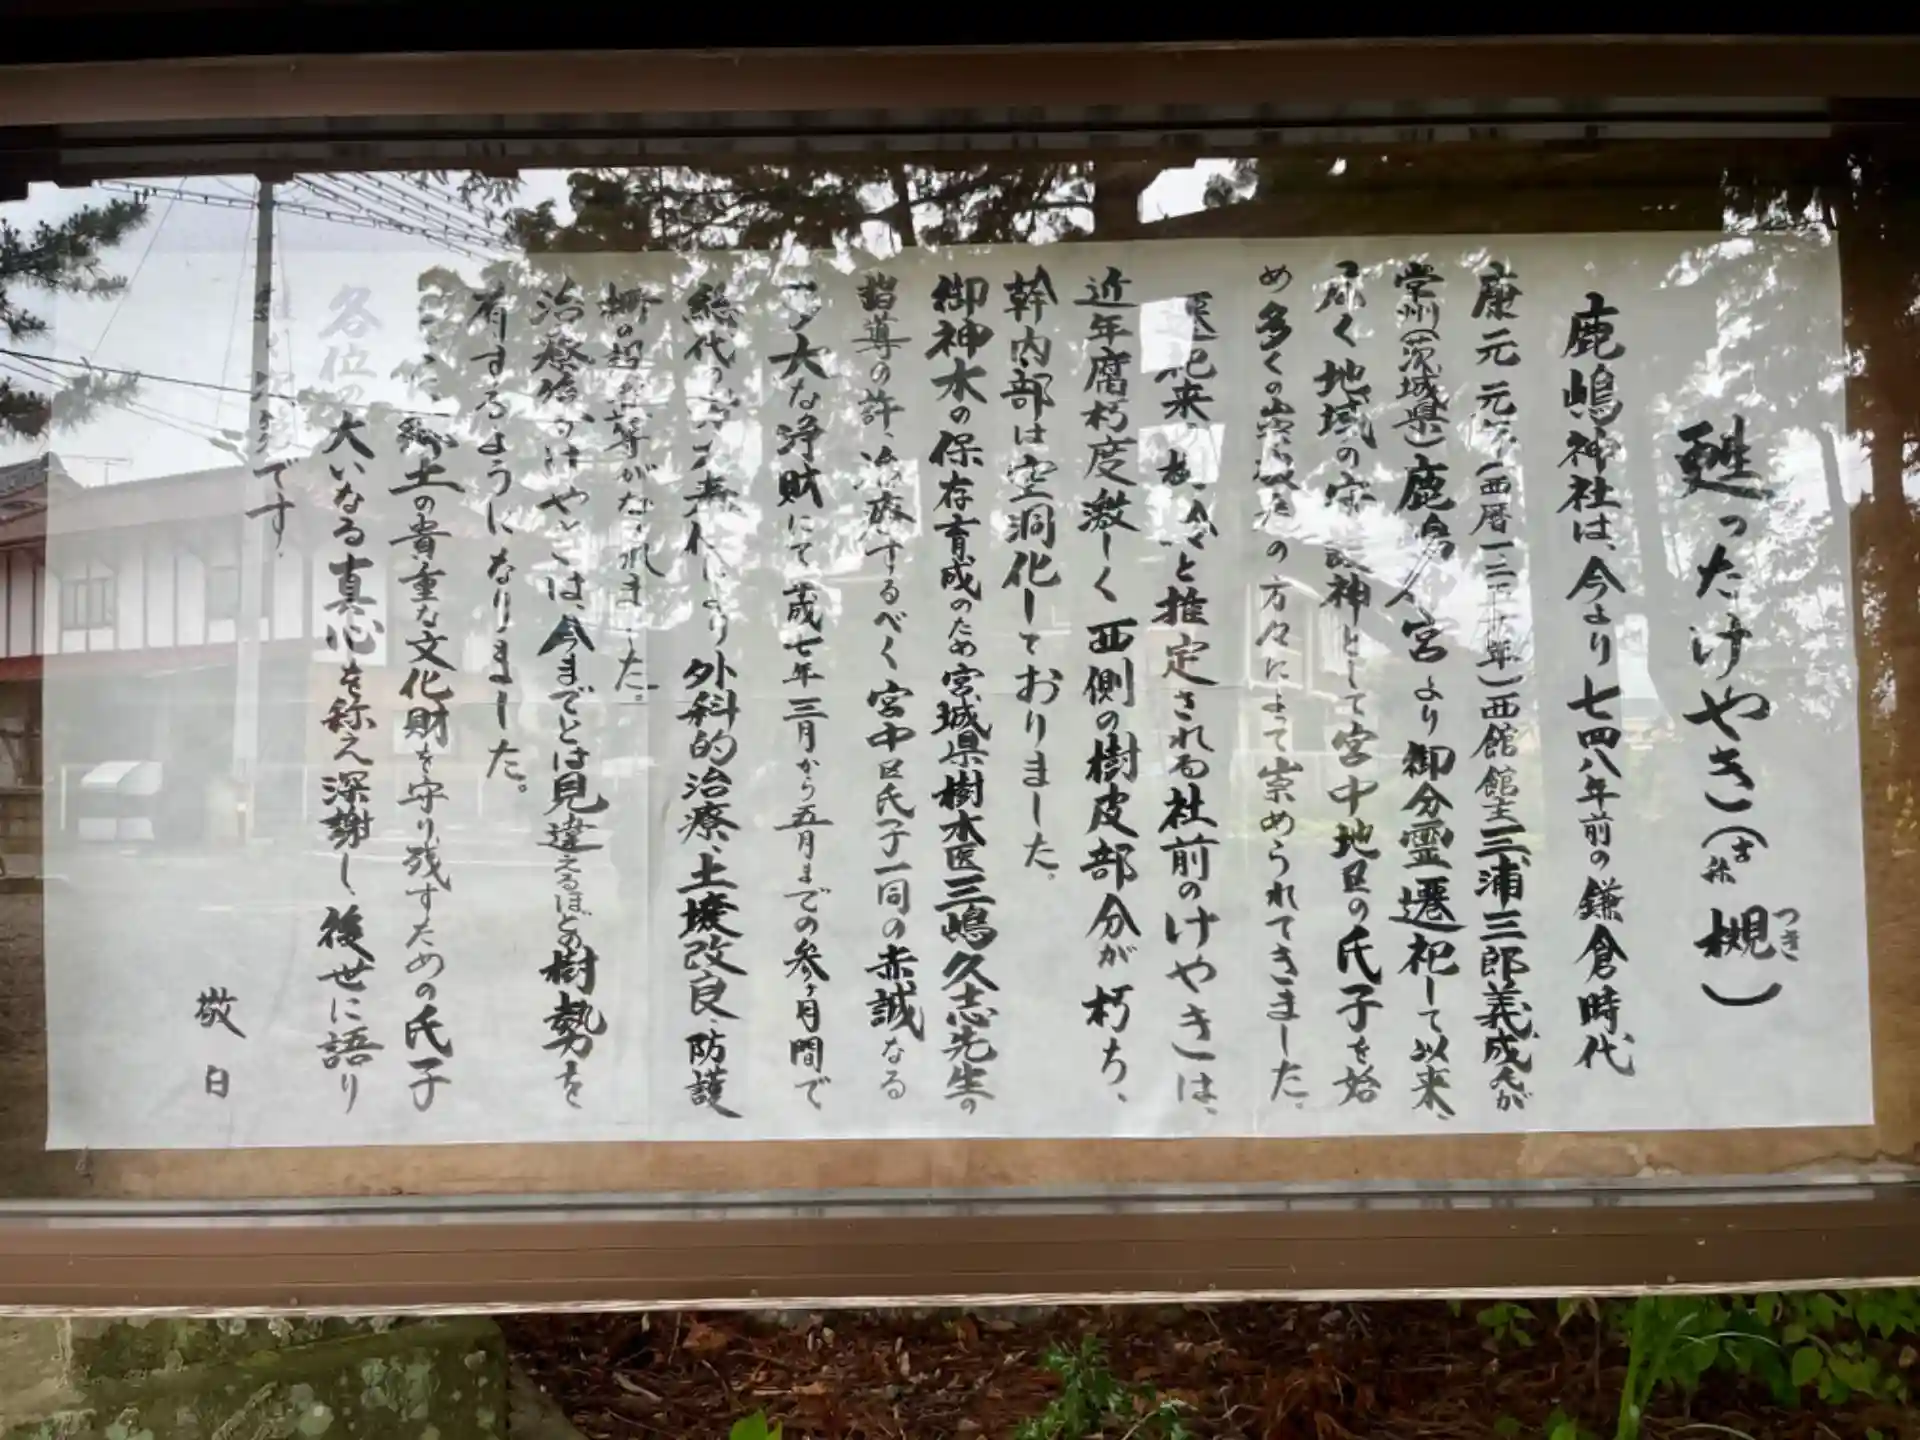 甦ったけやき(古称 槻つき)
鹿嶋神社は、今より七四八年前の鎌倉時代
康元元年(西暦一二 年)西館館主三浦三郎義成氏が
常州(茨城県)鹿嶋 宮より御分霊遷祀して以来、
く地域の守護神として宮中地区の氏子を始
め多くの崇 の方々によって崇められてきました。
遷祀来、 と推定される社前のけやきは、
近年腐朽度激しく西側の樹皮部分が朽ち、
幹内部は空洞化しておりました。
御神木の保存育成のため宮城県樹木医三嶋久志先生の
指導の許、治療するべく宮中区氏子一同の赤誠なる
大な浄財にて平成七年三月から五月までの参ヶ月間で
総代 により外科的治療、土壌改良、防護
柵の 等がなされました。
治療後 けやきは、今までとは見違えるほどの樹勢を
有するようになりました。
ここに、郷土の貴重な文化財を守り残すための氏子
各位の大いなる真心を称え深謝し、後世に語り
です。
敬白